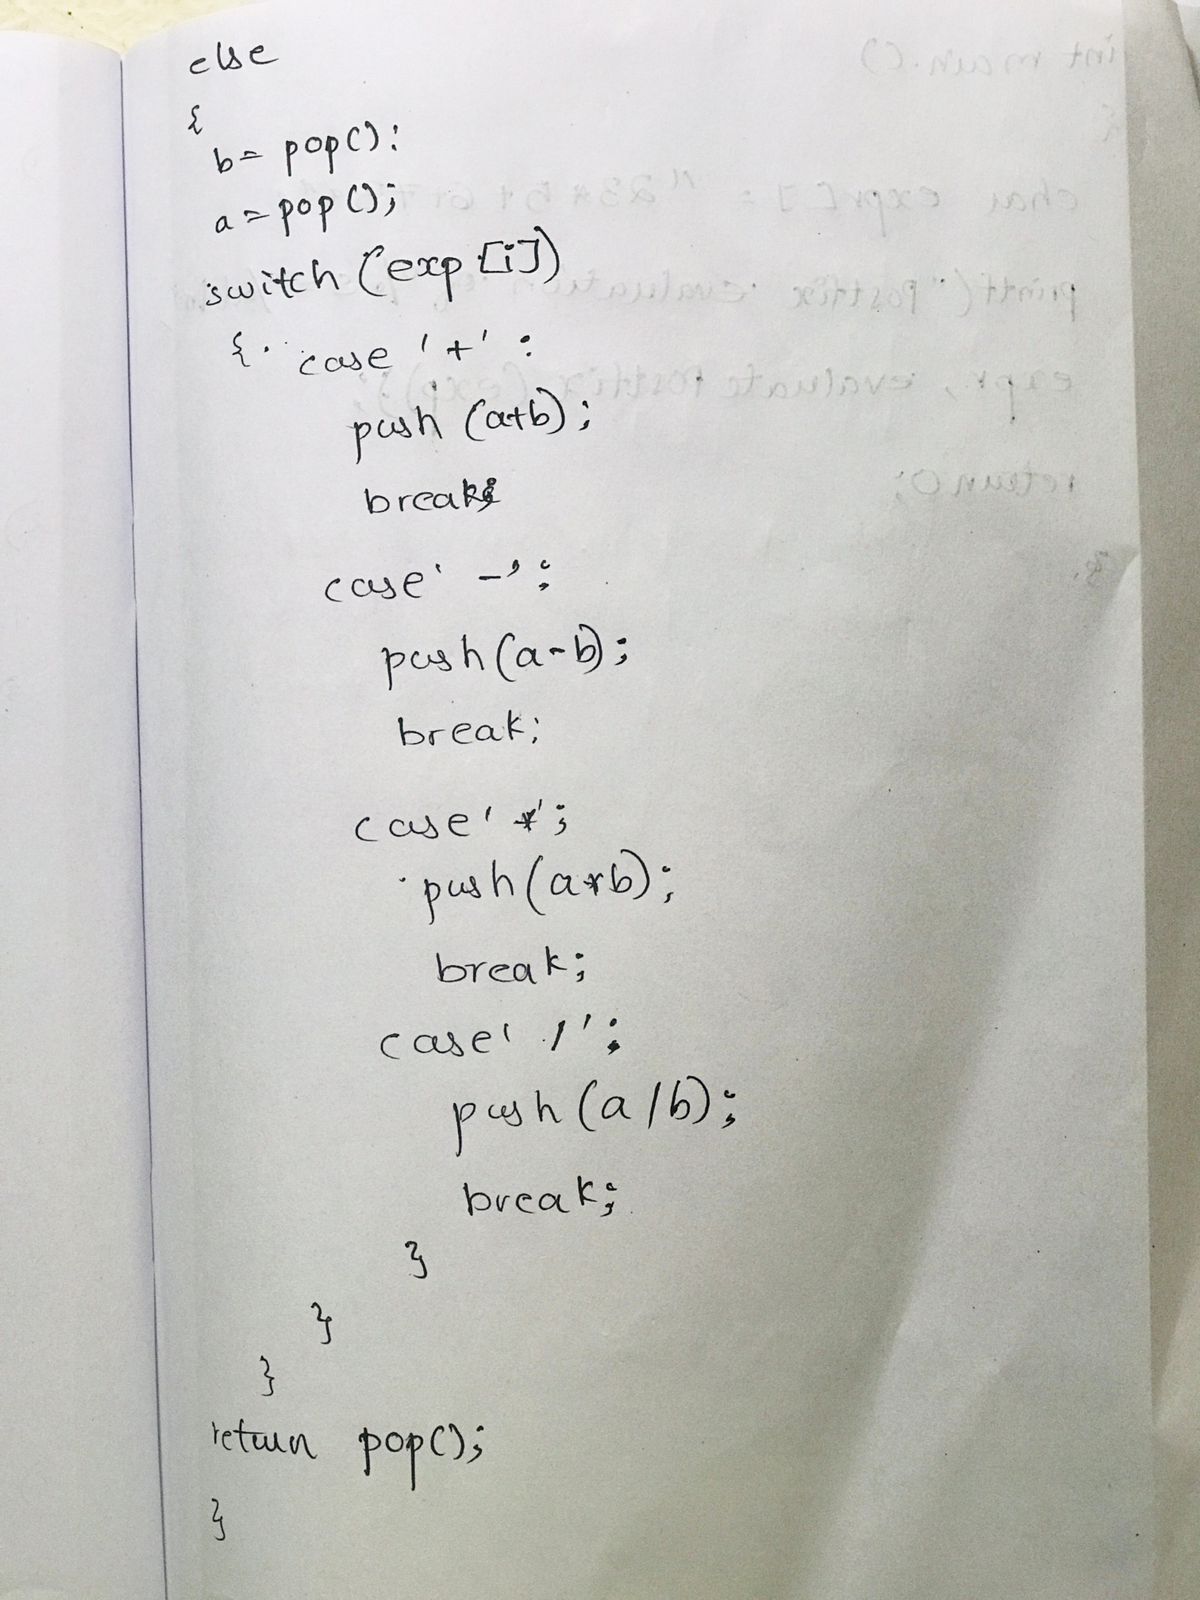 else
{
b= pop():
a=pop();
switch (exp[i])
{ case '+' :
push (a+b);
break;
case' -':
push(a-b);
break;
case' *';
push(a*b);
break;
case' /';
push(a/b);
break;
}
}
}
return pop();
}